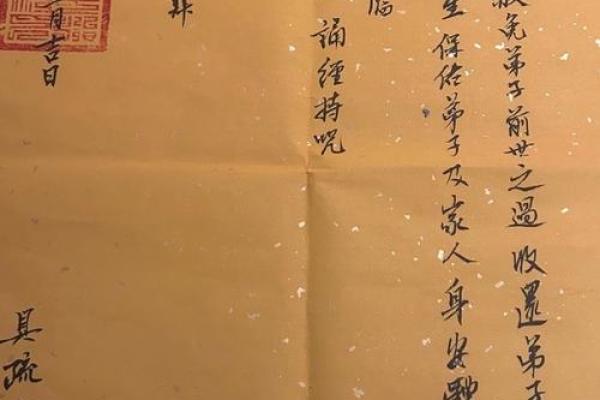 赦免弟子前世之過 收還弟子
保佑弟子及家人 身安
誦經持咒
月吉日
具疏